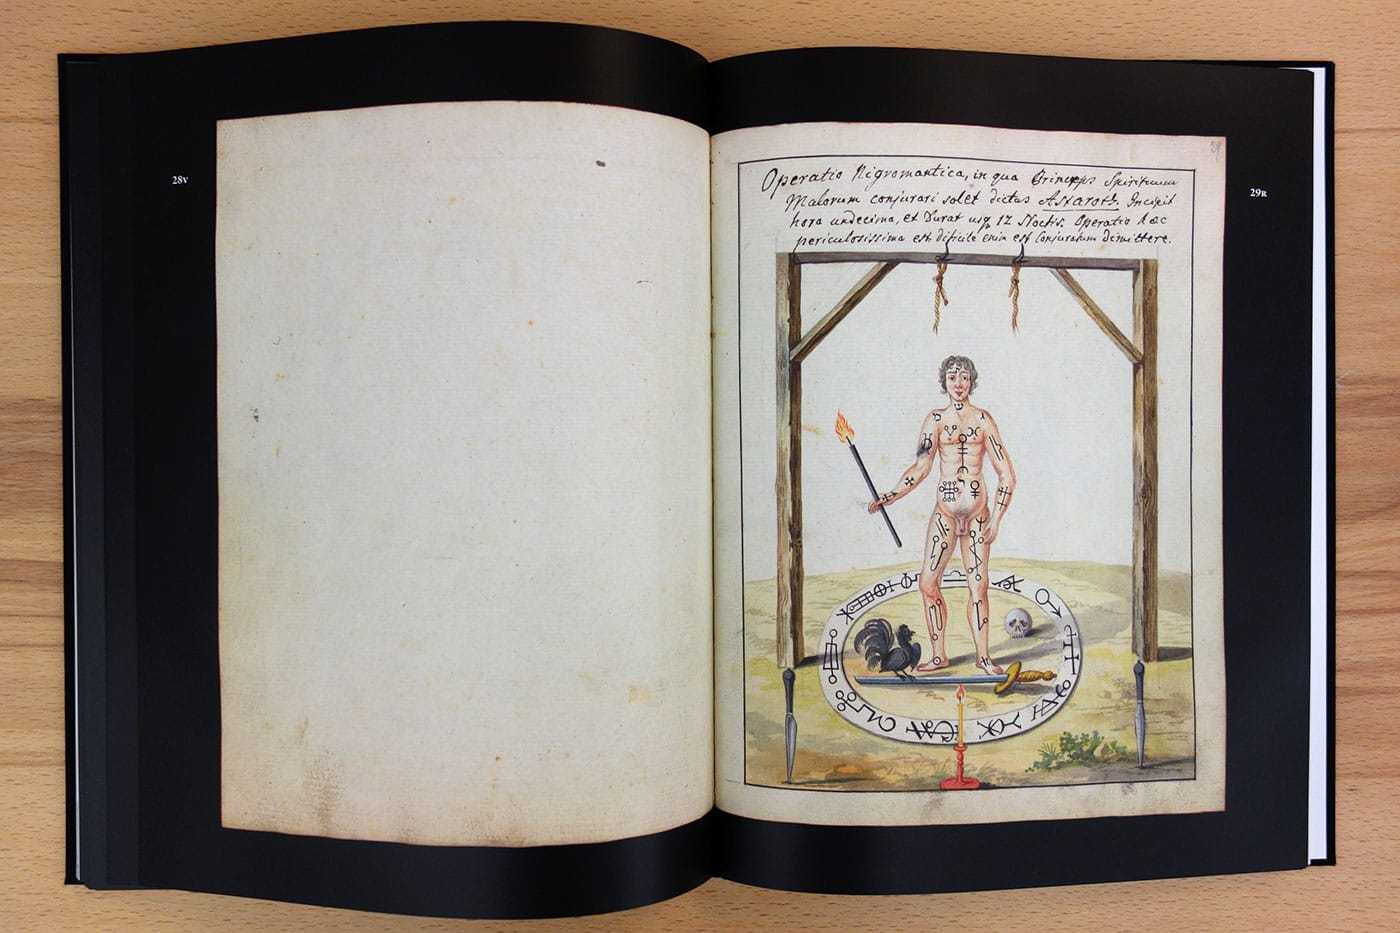 28v
29
29R
Operatio Nigromantica, in qua Princeps Spirituum
Malorum conjurari solet dictus Astaroth. Incipit
hora undecima, et Durat usq 12 Noctis. Operatio haec
periculosissima est, dificile enim est Conjuratum dimittere.